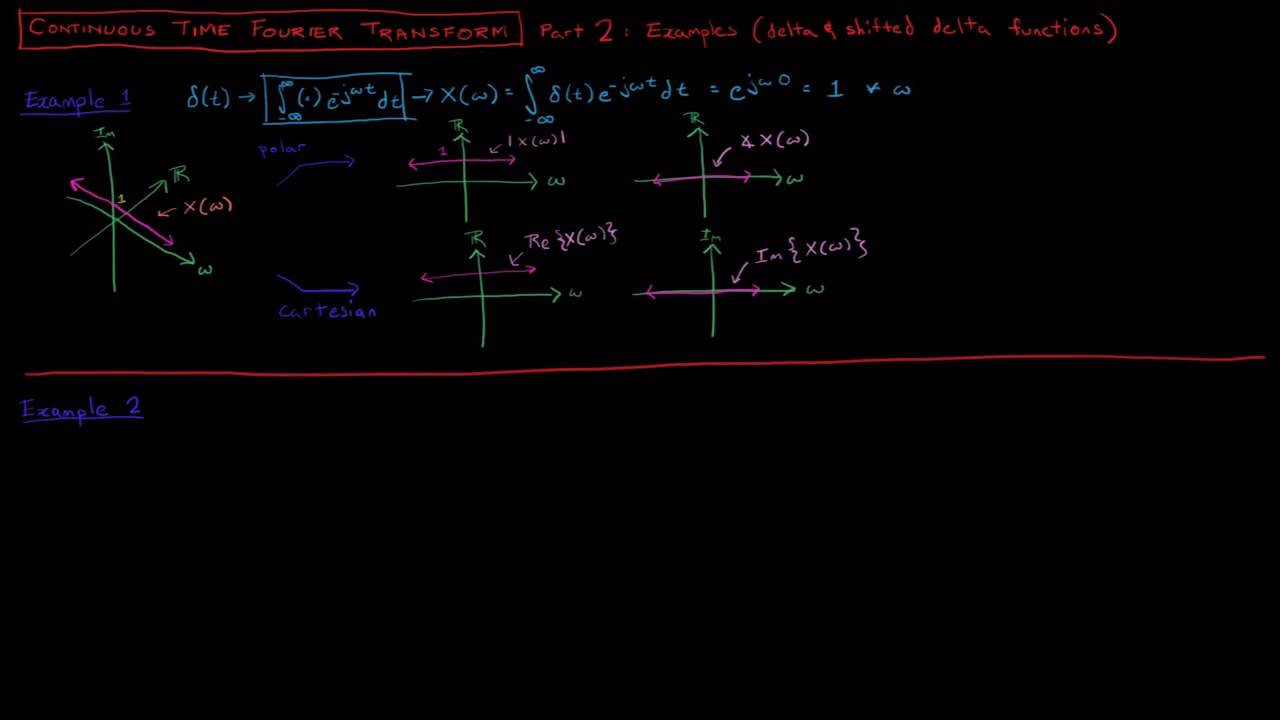 CONTINUOUS TIME FOURIER TRANSFORM Part 2: Examples (delta & shifted delta functions)
Example 1 δ(t) → ∫_{-∞}^{∞} (·) e^{-jωt} dt → X(ω) = ∫_{-∞}^{∞} δ(t) e^{-jωt} dt = e^{jω0} = 1 ∀ ω
Im ℝ 1 X(ω) ω
polar
ℝ 1 |X(ω)| ω
ℝ ∡ X(ω) ω
Cartesian
ℝ Re{X(ω)} ω
Im Im{X(ω)} ω
Example 2